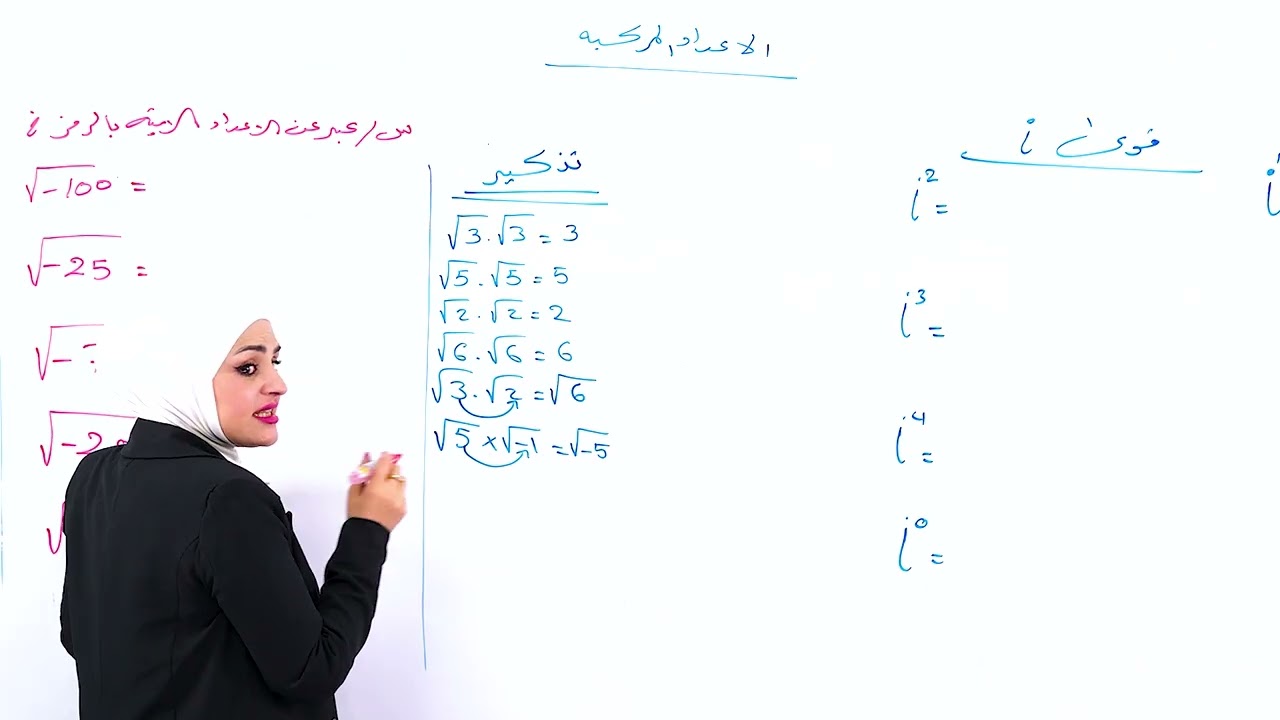 الاعداد المركبه
س/ عبر عن الاعداد الاتية بالرمز i
√-100 =
√-25 =
√-
√-2
تذكير
√3 . √3 = 3
√5 . √5 = 5
√2 . √2 = 2
√6 . √6 = 6
√3 . √2 = √6
√5 × √-1 = √-5
قوى i
i² =
i³ =
i⁴ =
i⁰ =